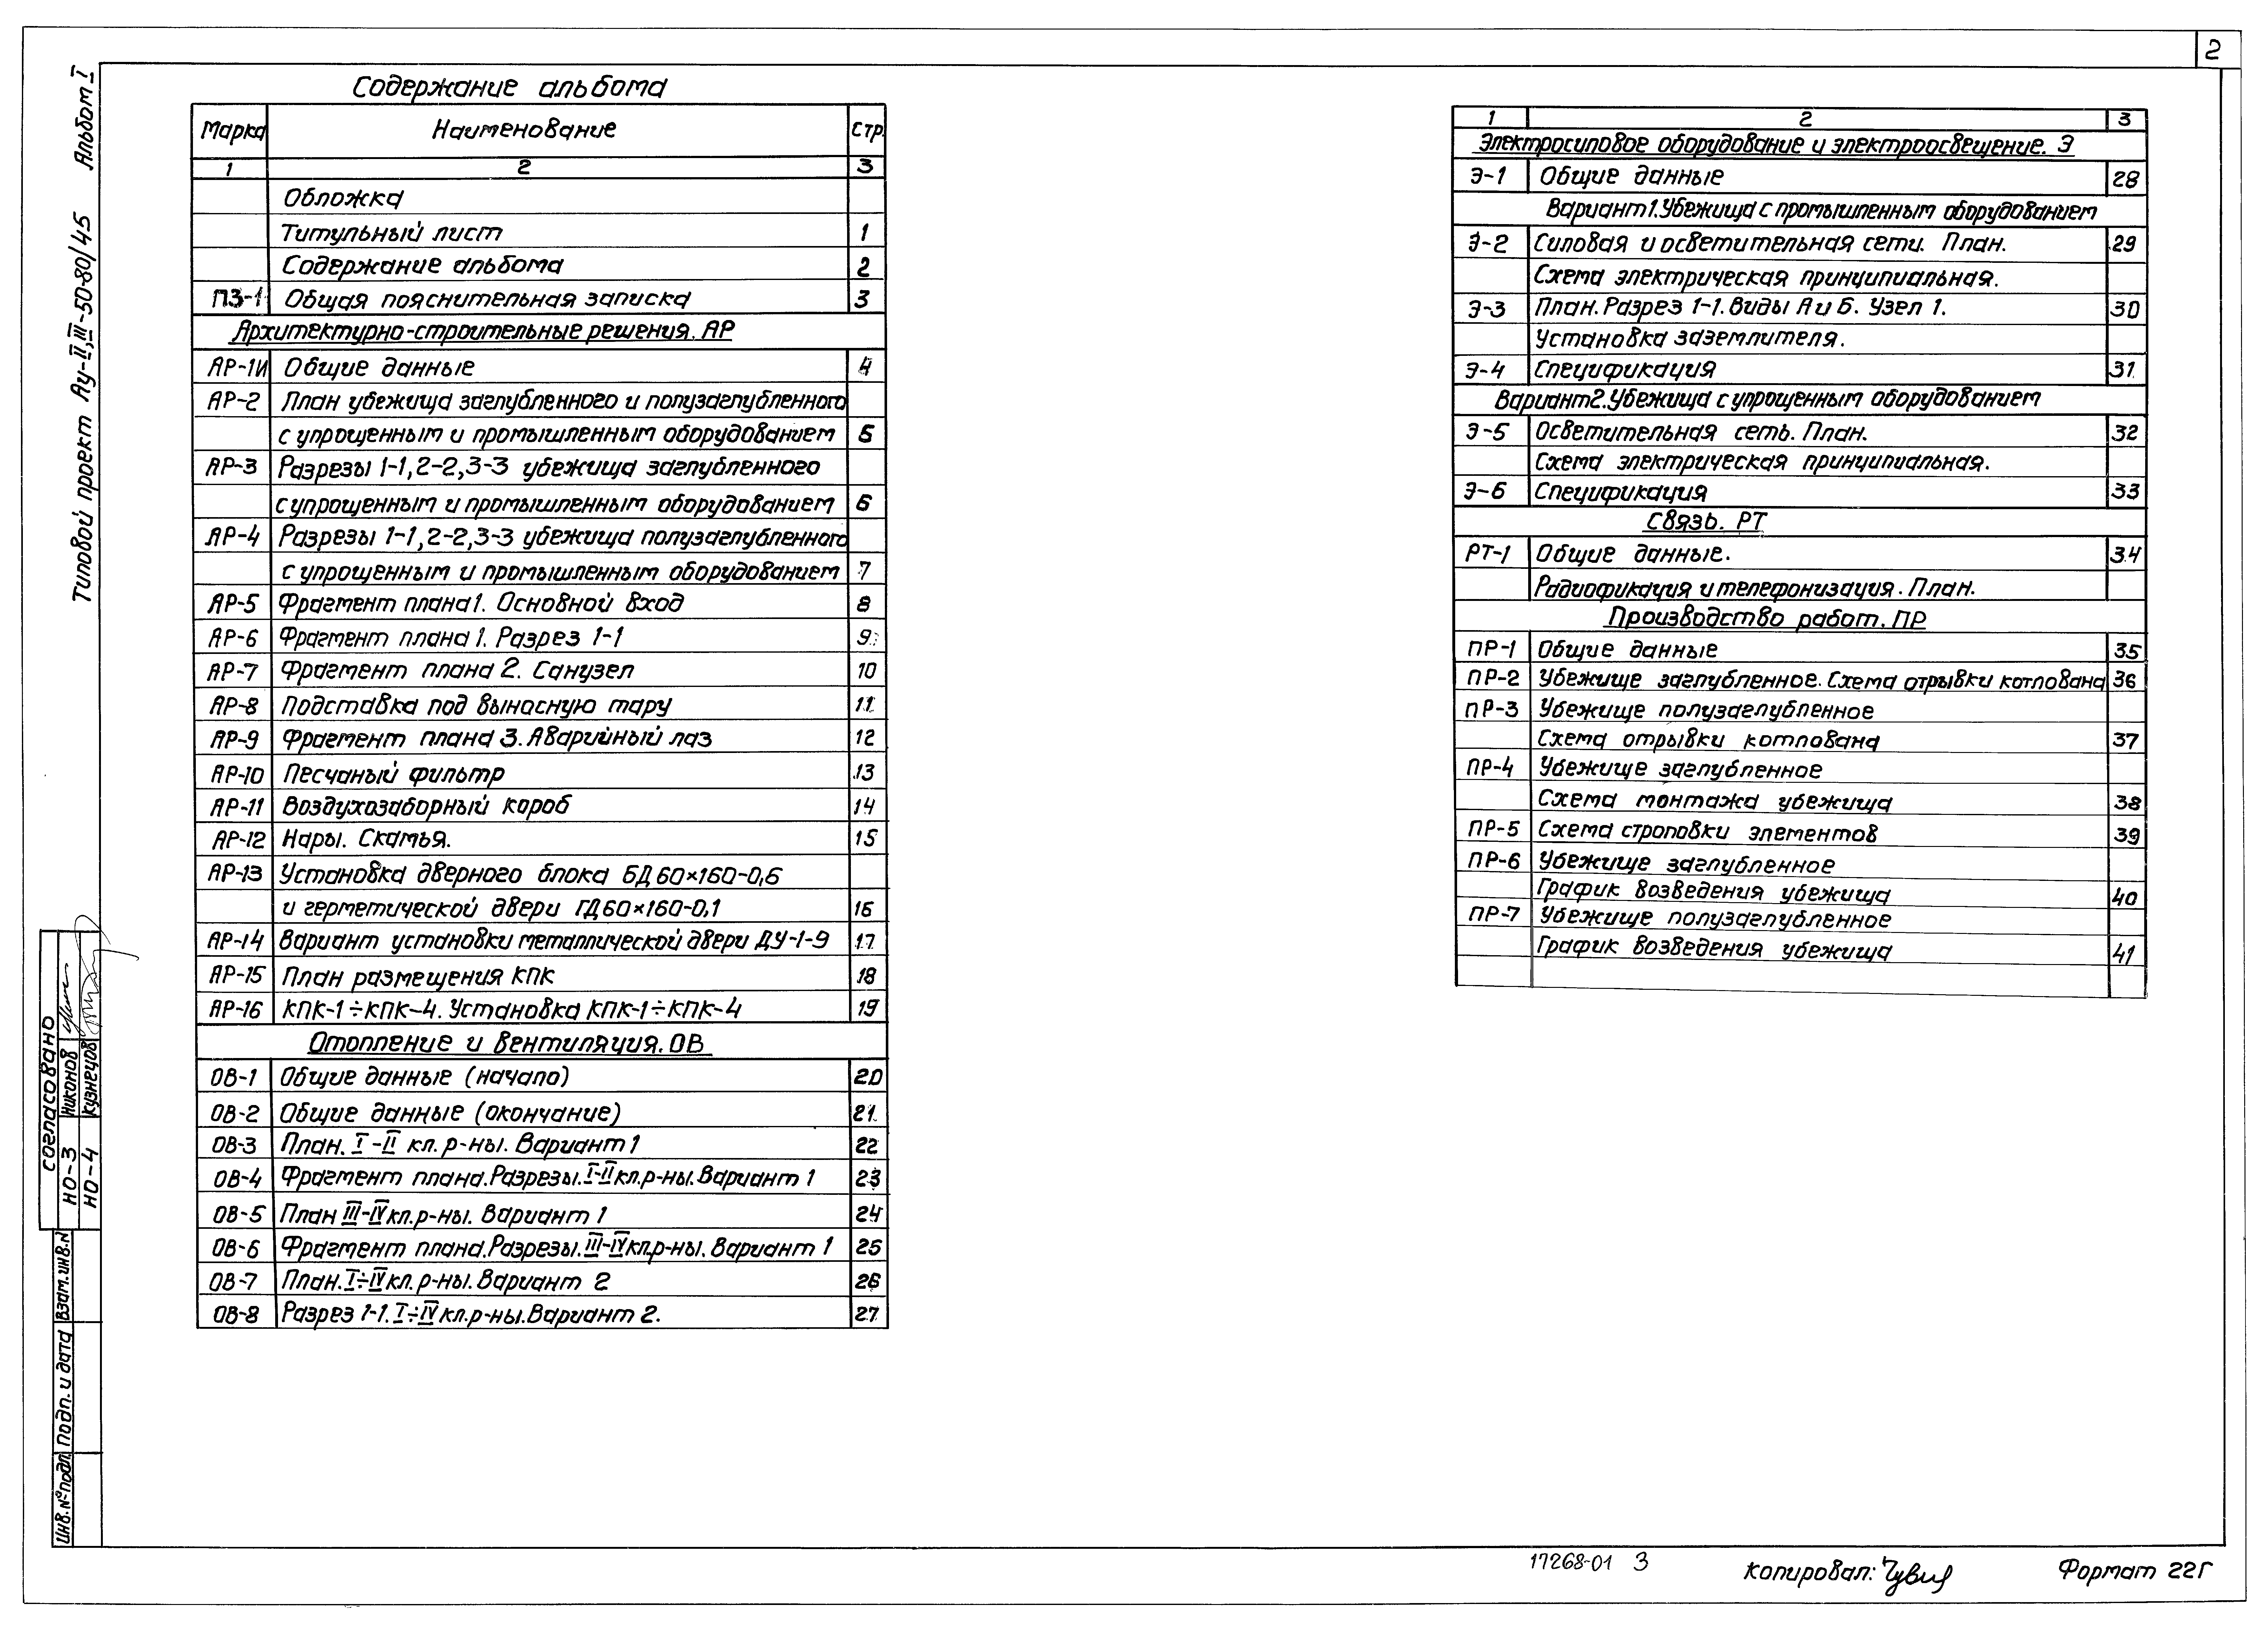 2
Типовой проект Ау-II,III-50-80/45 Альбом I
Содержание альбома
Марка Наименование Стр.
1 2 3
Обложка
Титульный лист 1
Содержание альбома 2
ПЗ-1 Общая пояснительная записка 3
Архитектурно-строительные решения. АР
АР-1И Общие данные 4
АР-2 План убежища заглубленного и полузаглубленного
с упрощенным и промышленным оборудованием 5
АР-3 Разрезы 1-1, 2-2, 3-3 убежища заглубленного
с упрощенным и промышленным оборудованием 6
АР-4 Разрезы 1-1, 2-2, 3-3 убежища полузаглубленного
с упрощенным и промышленным оборудованием 7
АР-5 Фрагмент плана 1. Основной вход 8
АР-6 Фрагмент плана 1. Разрез 1-1 9
АР-7 Фрагмент плана 2. Санузел 10
АР-8 Подставка под выносную тару 11
АР-9 Фрагмент плана 3. Аварийный лаз 12
АР-10 Песчаный фильтр 13
АР-11 Воздухозаборный короб 14
АР-12 Нары. Скамья. 15
АР-13 Установка дверного блока БД 60×160-0,6
и герметической двери ГД 60×160-0,1 16
АР-14 Вариант установки металлической двери ДУ-1-9 17
АР-15 План размещения КПК 18
АР-16 КПК-1÷КПК-4. Установка КПК-1÷КПК-4 19
Отопление и вентиляция. ОВ
ОВ-1 Общие данные (начало) 20
ОВ-2 Общие данные (окончание) 21
ОВ-3 План. I-II кл. р-ны. Вариант 1 22
ОВ-4 Фрагмент плана. Разрезы. I-II кл. р-ны. Вариант 1 23
ОВ-5 План III-IV кл. р-ны. Вариант 1 24
ОВ-6 Фрагмент плана. Разрезы. III-IV кл. р-ны. Вариант 1 25
ОВ-7 План. I÷IV кл. р-ны. Вариант 2 26
ОВ-8 Разрез 1-1. I÷IV кл. р-ны. Вариант 2. 27
1 2 3
Электросиловое оборудование и электроосвещение. Э
Э-1 Общие данные 28
Вариант 1. Убежища с промышленным оборудованием
Э-2 Силовая и осветительная сети. План. 29
Схема электрическая принципиальная.
Э-3 План. Разрез 1-1. Виды А и Б. Узел 1. 30
Установка заземлителя.
Э-4 Спецификация 31
Вариант 2. Убежища с упрощенным оборудованием
Э-5 Осветительная сеть. План. 32
Схема электрическая принципиальная.
Э-6 Спецификация 33
Связь. РТ
РТ-1 Общие данные. 34
Радиофикация и телефонизация. План.
Производство работ. ПР
ПР-1 Общие данные 35
ПР-2 Убежище заглубленное. Схема отрывки котлована 36
ПР-3 Убежище полузаглубленное
Схема отрывки котлована 37
ПР-4 Убежище заглубленное
Схема монтажа убежища 38
ПР-5 Схема строповки элементов 39
ПР-6 Убежище заглубленное
График возведения убежища 40
ПР-7 Убежище полузаглубленное
График возведения убежища 41
Согласовано
НО-3 Никонов
НО-4 Кузнецов
Инв. №подл. Подп. и дата Взам. инв. №
17268-01 3
Копировал:
Формат 22Г